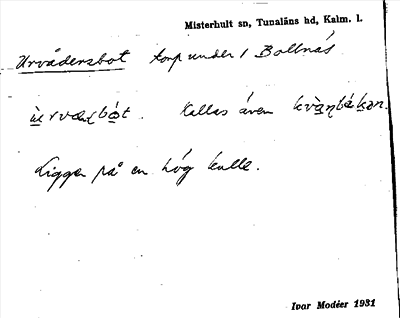 Misterhult sn, Tunaläns hd, Kalm. l.
Urvädersbot torp under 1 Bollnäs
ùrvæʂbo̱t. Kallas även kvà̱ɳbákən.
Ligger på en hög kulle.
Ivar Modéer 1931